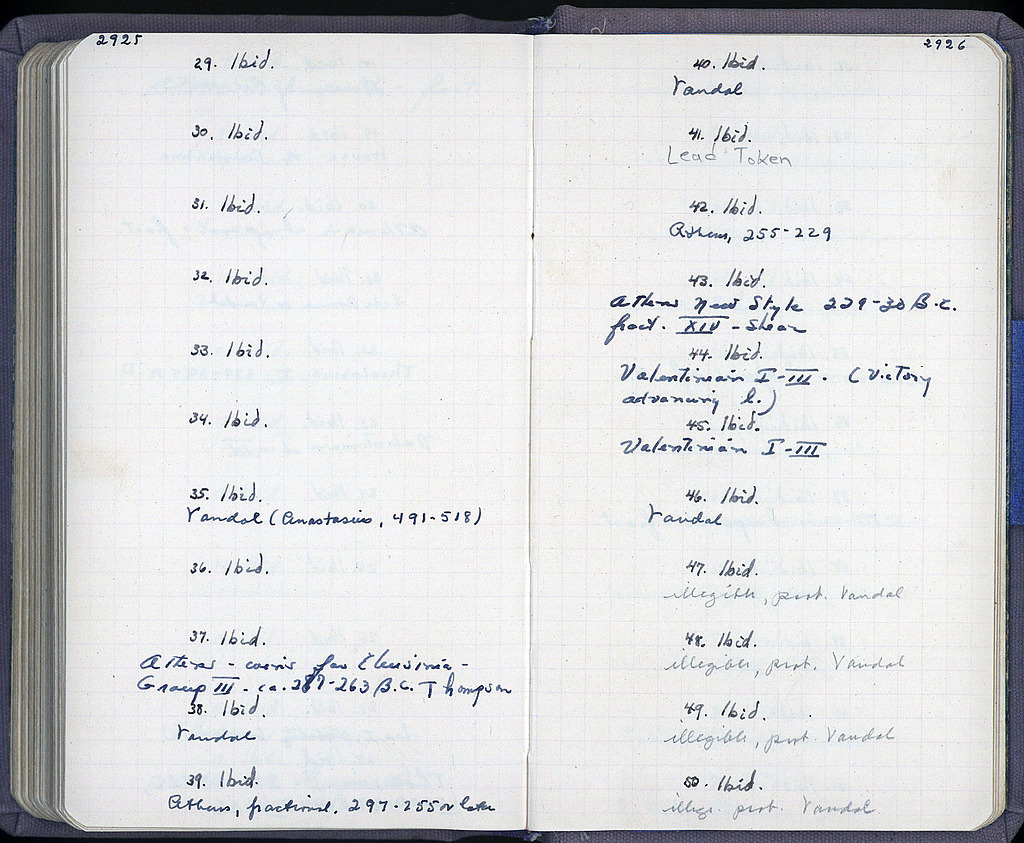 2925
29. Ibid.
30. Ibid.
31. Ibid.
32. Ibid.
33. Ibid.
34. Ibid.
35. Ibid.
Vandal (Anastasius, 491-518)
36. Ibid.
37. Ibid.
Athens - coins for Eleusinia -
Group III - ca. 287-263 B.C. Thompson
38. Ibid.
Vandal
39. Ibid.
Athens, fractional. 297-255 or later
2926
40. Ibid.
Vandal
41. Ibid.
Lead Token
42. Ibid.
Athens, 255-229
43. Ibid.
Athens New Style 229-30 B.C.
fract. XIV - Shear
44. Ibid.
Valentinian I-III. (Victory
advancing l.)
45. Ibid.
Valentinian I-III
46. Ibid.
Vandal
47. Ibid.
illegible, prob. Vandal
48. Ibid.
illegible, prob. Vandal
49. Ibid.
illegible, prob. Vandal
50. Ibid.
illeg. prob. Vandal